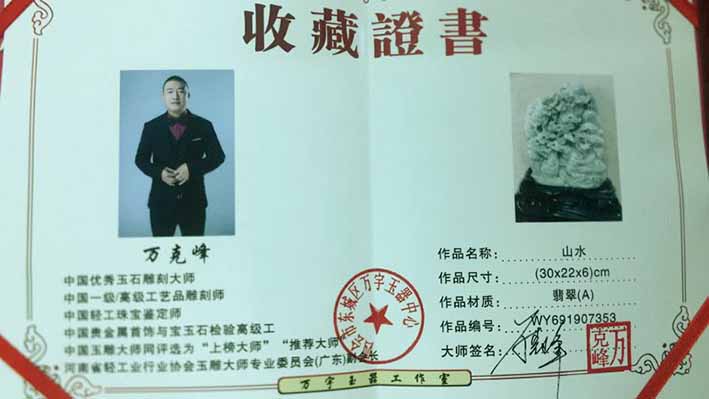 收藏證書
万克峰
中国优秀玉石雕刻大师
中国一级/高级工艺品雕刻师
中国轻工珠宝鉴定师
中国贵金属首饰与宝玉石检验高级工
中国玉雕大师网评选为“上榜大师”“推荐大师”
河南省轻工业行业协会玉雕大师专业委员会(广东)副会长
作品名称: 山水
作品尺寸: (30x22x6)cm
作品材质: 翡翠(A)
作品编号: WY691907353
大师签名:
万克峰
东城区万宇玉器中心
万宇玉器工作室